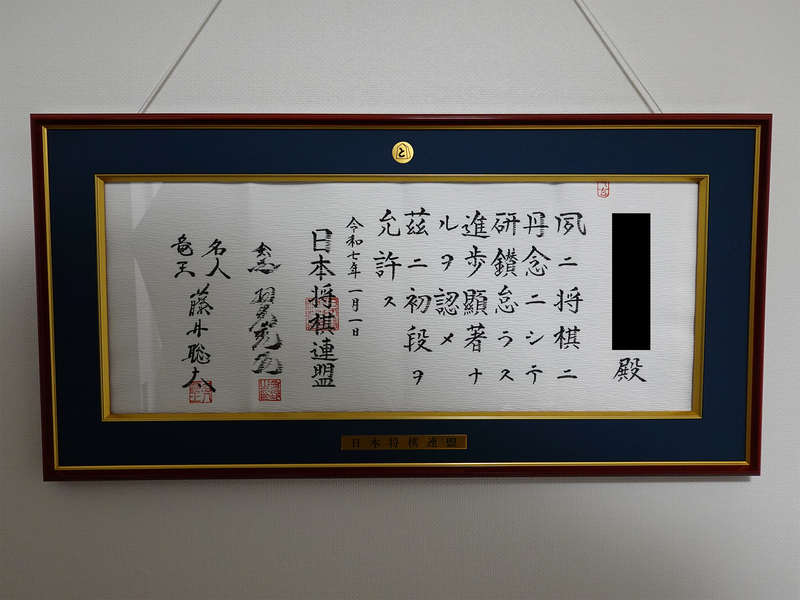 と
殿
夙ニ将棋ニ
丹念ニシテ
研鑽怠ラス
進歩顯著ナ
ルヲ認メ
茲ニ初段ヲ
允許ス
令和七年一月一日
日本将棋連盟
会長 羽生善治
名人
竜王 藤井聡太
日本将棋連盟